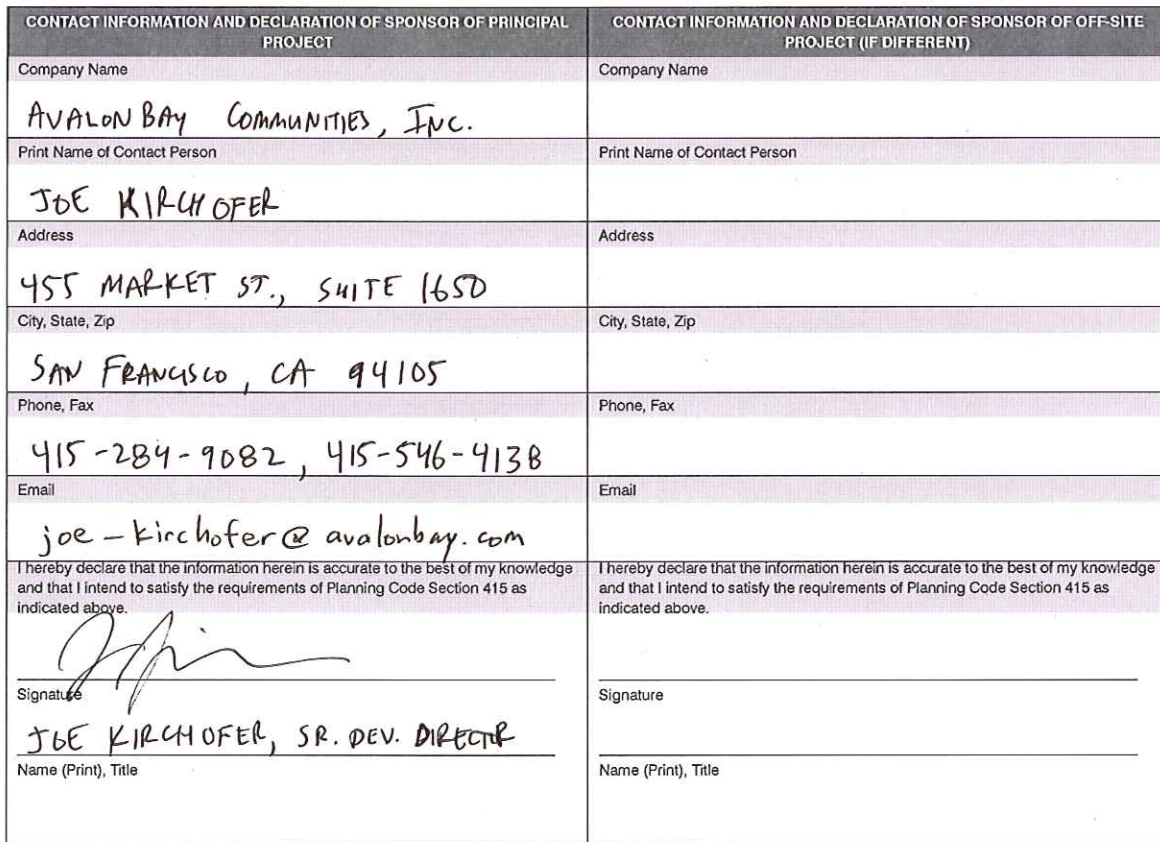 CONTACT INFORMATION AND DECLARATION OF SPONSOR OF PRINCIPAL
PROJECT
Company Name
AVALONBAY COMMUNITIES, INC.
Print Name of Contact Person
JOE KIRCHOFER
Address
455 MARKET ST., SUITE 1650
City, State, Zip
SAN FRANCISCO, CA 94105
Phone, Fax
415-284-9082, 415-546-4138
Email
joe-kirchofer@avalonbay.com
I hereby declare that the information herein is accurate to the best of my knowledge
and that I intend to satisfy the requirements of Planning Code Section 415 as
indicated above.
Signature
JOE KIRCHOFER, SR. DEV. DIRECTOR
Name (Print), Title
CONTACT INFORMATION AND DECLARATION OF SPONSOR OF OFF-SITE
PROJECT (IF DIFFERENT)
Company Name
Print Name of Contact Person
Address
City, State, Zip
Phone, Fax
Email
I hereby declare that the information herein is accurate to the best of my knowledge
and that I intend to satisfy the requirements of Planning Code Section 415 as
indicated above.
Signature
Name (Print), Title